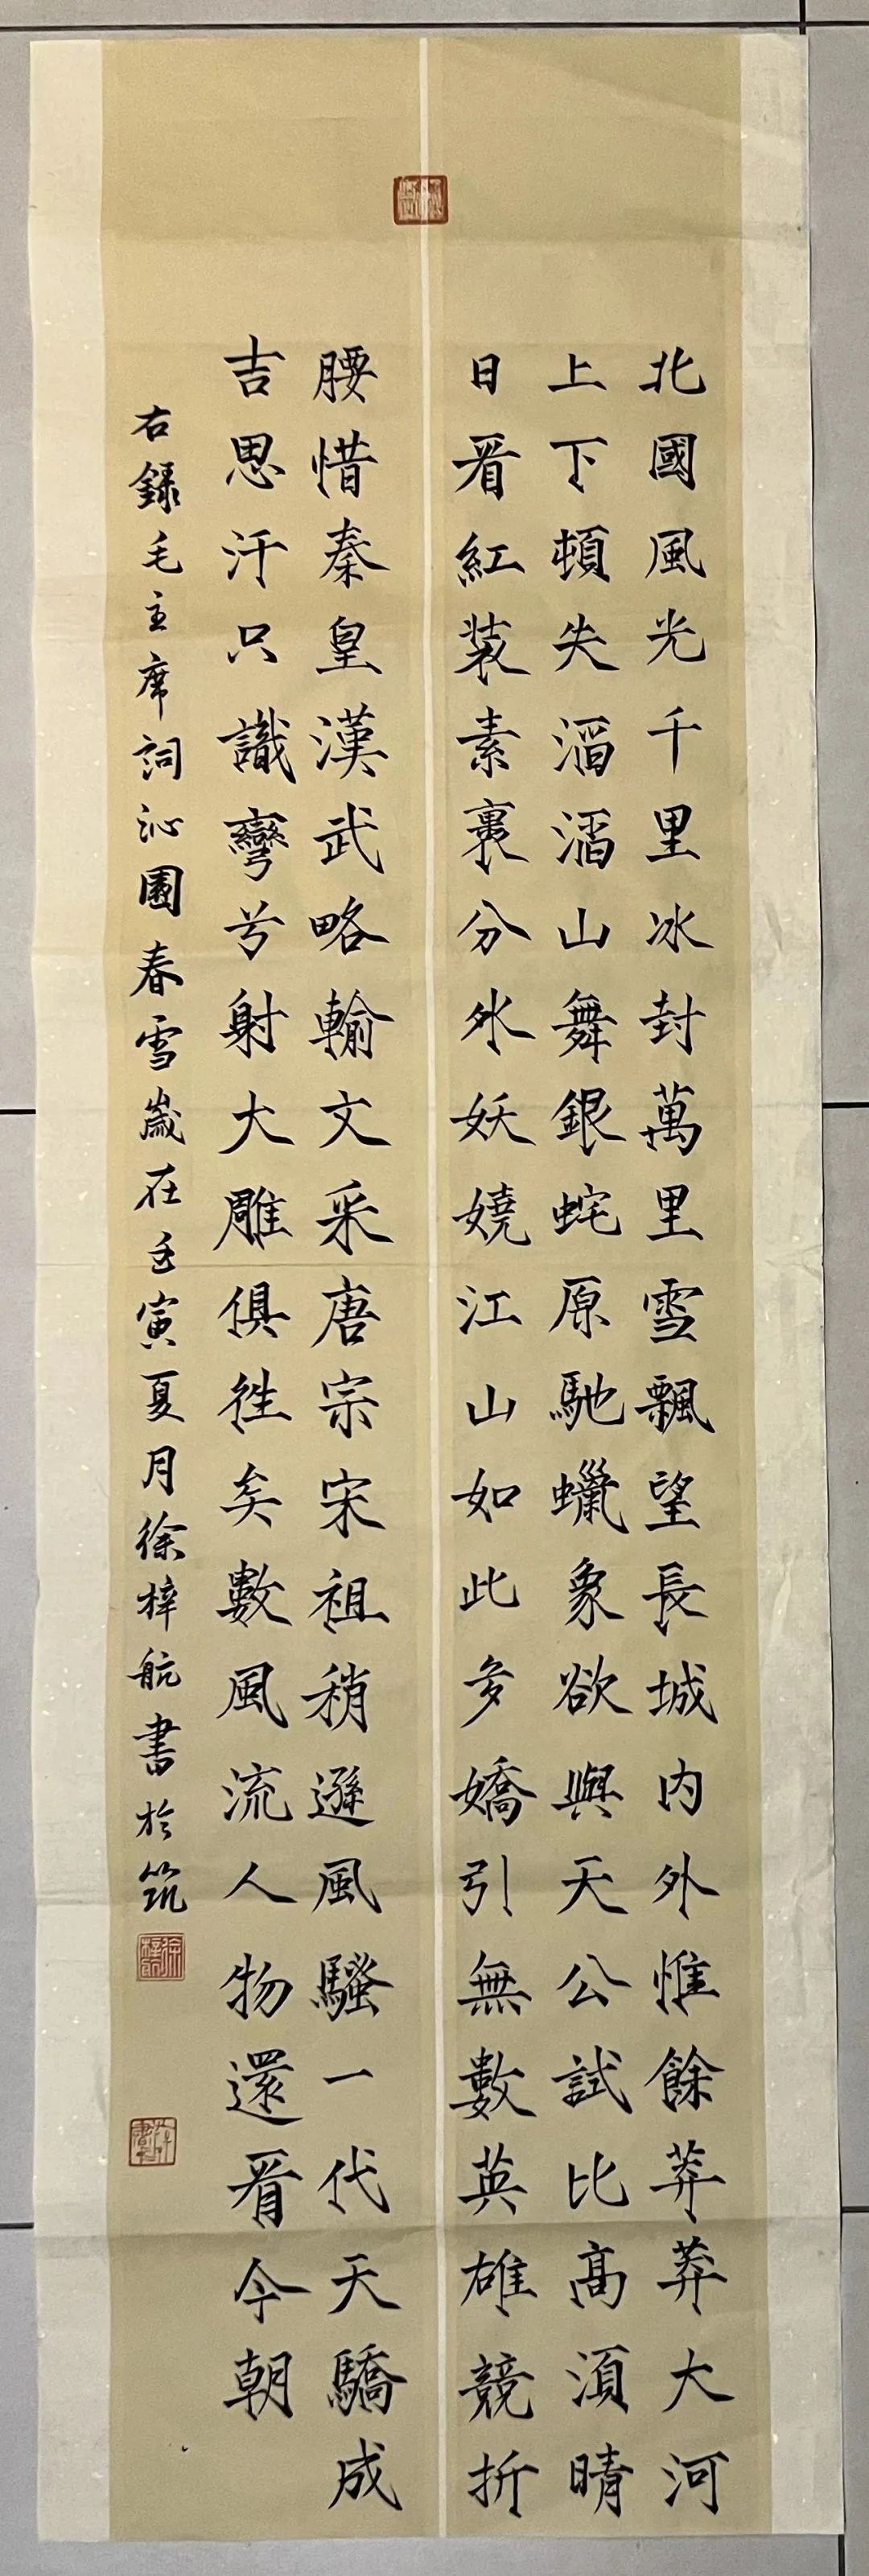 北國風光千里冰封萬里雪飄望長城内外惟餘莽莽大河
上下頓失滔滔山舞銀蛇原馳蠟象欲與天公試比高須晴
日看紅装素裹分外妖嬈江山如此多嬌引無數英雄競折
腰惜秦皇漢武略輸文采唐宗宋祖稍遜風騷一代天驕成
吉思汗只識彎兮射大雕俱往矣數風流人物還看今朝
右録毛主席詞沁園春雪嵗在壬寅夏月徐梓航書於筑